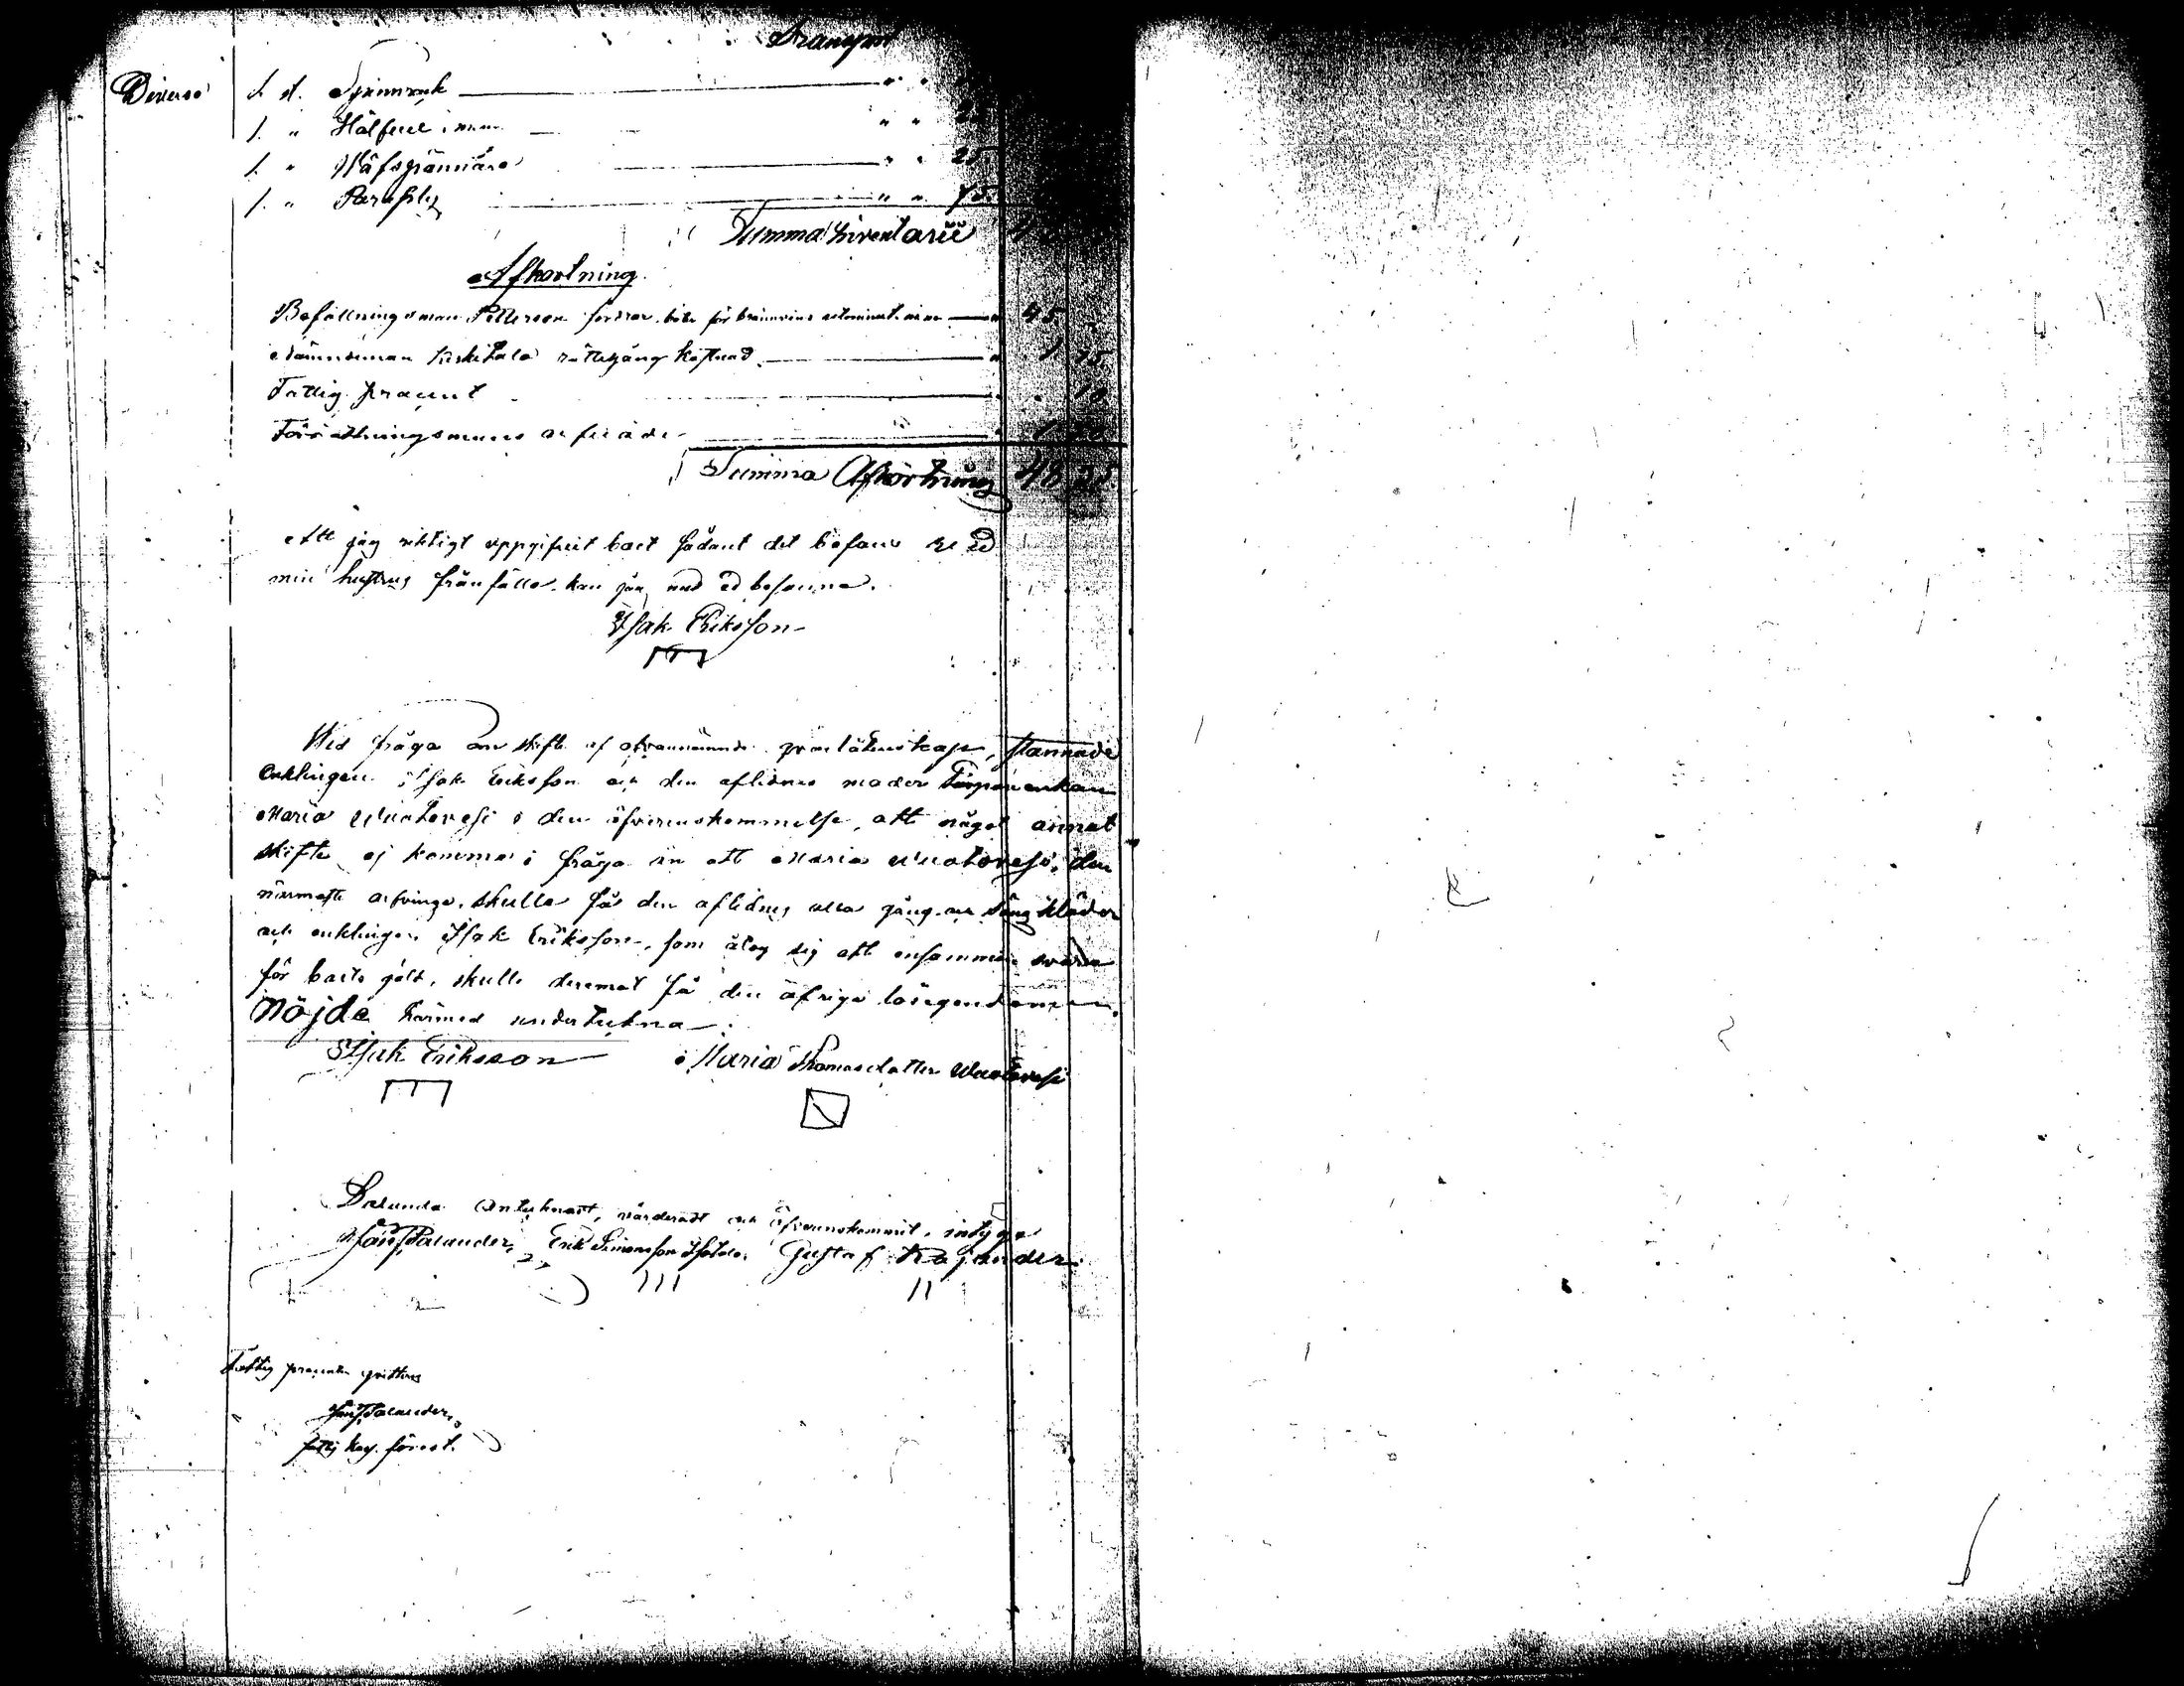 Transport
Diverse 1 st. Spinnrock " "
1. " Hålfvel " "
1. " Wäfspännare " " 25.
1. " Paraply " " 75.
Summa Inventarii
Afkortning
Befallningsman Petterson fordrar böter för brännvins " 45 "
Nämndeman Keskitalo rättegång kostnad " 1 75.
Fattig procent " " 10
Förrättningsmans arfvode " 1
Summa Afkortning 48 25.
Att jag riktigt uppgifvit boet sådant det befans vid
min hustrus frånfälle kan jag med ed besanna.
Isak Eriksson
Vid fråga om skifte af ofvannämnde qvarlåtenskap, stannade
Enklingen Isak Eriksson och den aflidnes moder Torparenkan
Maria Wuotovesi i den öfverenskommelse, att något annat
skifte ej kommer i fråga än att Maria Wuotovesi, den
närmaste arfvinge, skulle få den aflidnes alla gång och sängkläder
och enklingen Isak Eriksson, som åtog sig att ensammen svara
för boets gäld, skulle deremot få den öfriga lösegendomen.
Nöjde härmed underteckna.
Isak Eriksson Maria Thomasdotter Wuotovesi
Sålunda antecknadt, värderadt och öfverenskommit, intyga
Palander, Erik Simonsson Gustaf Kajander.
Fattig procenten qvitteras
Palander
fattig kass. förest.